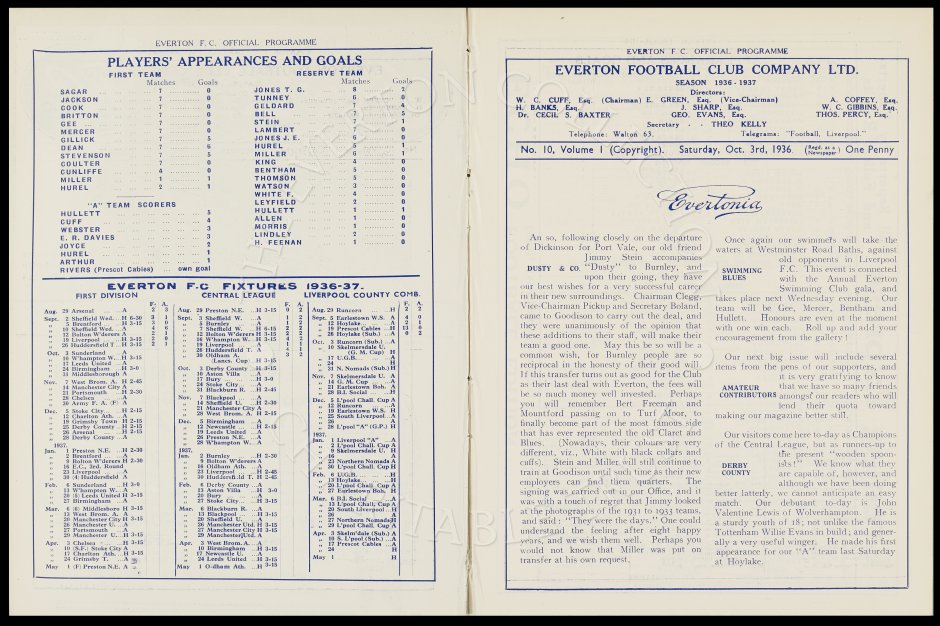 EVERTON F.C. OFFICIAL PROGRAMME
PLAYERS' APPEARANCES AND GOALS
FIRST TEAM
Matches Goals
SAGAR 7 0
JACKSON 7 0
COOK 7 0
BRITTON 7 0
GEE 7 0
MERCER 7 0
GILLICK 7 5
DEAN 7 6
STEVENSON 7 5
COULTER 7 0
CUNLIFFE 4 0
MILLER 1 1
HUREL 2 1
"A" TEAM SCORERS
HULLETT 5
CUFF 4
WEBSTER 3
E. R. DAVIES 3
JOYCE 2
HUREL 1
ARTHUR 1
RIVERS (Prescot Cables) ... own goal
RESERVE TEAM
Matches Goals
JONES T. G. 8 2
TUNNEY 6 0
GELDARD 7 4
BELL 7 5
STEIN 7 1
LAMBERT 7 0
JONES J. E. 6 0
HUREL 5 1
MILLER 6 1
KING 4 0
BENTHAM 5 0
THOMSON 5 0
WATSON 3 0
WHITE F. 4 0
LEYFIELD 2 0
HULLETT 1 1
ALLEN 1 0
MORRIS 1 0
LINDLEY 2 0
H. FEENAN 1 0
EVERTON F.C. FIXTURES 1936-37.
FIRST DIVISION
F. A.
Aug. 29 Arsenal A 2 3
Sept. 2 Sheffield Wed. H 6-30 3 1
" 5 Brentford H 3-15 3 0
" 12 Bolton W'derers A
" 19 Liverpool H 3-15 2 0
" 26 Huddersfield T. H 3-15 2 1
Oct. 3 Sunderland A
" 10 Whampton W. H 3-15
" 17 Leeds United A
" 24 Birmingham H 3-0
" 31 Middlesborough A
Nov. 7 West Brom. A. H 2-45
" 14 Manchester City A
" 21 Portsmouth H 2-30
" 28 Chelsea A
" 30 Army F. A. (F) A
Dec. 5 Stoke City H 2-15
" 12 Charlton Ath. A
" 19 Grimsby Town H 2-15
" 25 Derby County H 2-15
" 26 Arsenal H 2-15
" 28 Derby County A
1937.
Jan. 1 Preston N.E. H 2-30
" 2 Brentford A
" 9 Bolton W'derers H 2-30
" 16 E.C., 3rd. Round
" 23 Liverpool A
" 30 (4) Huddersfield A
Feb. 6 Sunderland H 3-0
" 13 W'hampton W. A
" 20 (5) Leeds United H 3-15
" 27 Birmingham A
Mar. 6 (6) Middlesboro H 3-15
" 13 West Brom. A. A
" 20 Manchester City H 3-15
" 26 Manchester U. A
" 27 Portsmouth A
" 29 Manchester U. H 3-15
Apr. 3 Chelsea H 3-15
" 10 (S.F.) Stoke City A
" 17 Charlton Ath. H 3-15
" 24 Grimsby T. A
May 1 (F) Preston N.E. A
CENTRAL LEAGUE
F. A.
Aug. 29 Preston N.E. H 3-15 0 2
Sept. 3 Sheffield W. A 1 2
" 5 Burnley A
" 7 Sheffield W. H 6-15
" 12 Bolton W'derers H 3-15 2 2
" 16 W'hampton W. H 3-15 4 2
" 19 Liverpool A 1 1
" 26 Huddersfield T. A 4 1
" 30 Oldham A. 3 2
(Lancs. Cup) H 3-15
Oct. 3 Derby County H 3-15
" 10 Aston Villa A
" 17 Bury H 3-0
" 24 Stoke City A
" 31 Blackburn R. H 2-45
Nov. 7 Blackpool A
" 14 Sheffield U. H 2-30
" 21 Manchester City A
" 28 West Brom. A. H 2-15
Dec. 5 Birmingham A
" 12 Newcastle H 2-15
" 19 Leeds United A
" 26 Preston N.E. A
" 28 W'hampton W. A
1937.
Jan. 2 Burnley H 2-30
" 9 Bolton W'derers A
" 16 Oldham Ath. A
" 23 Liverpool H 2-45
" 30 Huddersfi'ld T. H 2-45
Feb. 6 Derby County A
" 13 Aston Villa H 3-0
" 20 Bury A
" 27 Stoke City H 3-15
Mar. 6 Blackburn R. A
" 13 Blackpool H 3-15
" 20 Sheffield U. A
" 26 Manchester Utd. H 3-15
" 27 Manchester City H 3-15
" 29 Manchester Utd. A
Apr. 3 West Brom. A. A
" 10 Birmingham H 3-15
" 17 Newcastle U. A
" 24 Leeds United H 3-15
May 1 Oldham Ath. H 3-15
LIVERPOOL COUNTY COMB.
F. A.
Aug. 29 Runcorn H 2 2
Sept. 5 Earlestown W.S. A 4 0
" 12 Hoylake H
" 19 Prescot Cables H 13 0
" 26 Hoylake (Sub.) A 0 2
Oct. 3 Runcorn (Sub.) A
" 10 Skelmersdale U.
(G. M. Cup) H
" 17 U.G.B. A
" 24
" 31 N. Nomads (Sub.) H
Nov. 7 Skelmersdale U. A
" 14 G. M. Cup A
" 21 Earlestown Boh. A
" 28 B.I. Social H
Dec. 5 L'pool Chall. Cup A
" 12 Runcorn A
" 19 Earlestown W.S. H
" 25 South Liverpool H
" 26
" 28 L'pool "A" (G.P.) H
1937.
Jan. 1 Liverpool "A" A
" 2 L'pool Chall. Cup A
" 9 Skelmersdale U. H
" 16
" 23 Northern Nomads A
" 30 L'pool Chall. Cup H
Feb. 6 U.G.B. H
" 13 Hoylake A
" 20 L'pool Chall. Cup A
" 27 Earlestown Boh. H
Mar. 6 B.I. Social A
" 13 L'pool Chall. Cup A
" 20 South Liverpool A
" 26
" 27 Northern Nomads H
" 29 L'pool Chall. Cup A
Apr. 3 Skelm'dale (Sub.) A
" 10 S. L'pool (Sub.) A
" 17 Prescot Cables A
" 24 H
May 1
EVERTON F.C. OFFICIAL PROGRAMME
EVERTON FOOTBALL CLUB COMPANY LTD.
SEASON 1936 - 1937
Directors:
W. C. CUFF, Esq. (Chairman) E. GREEN, Esq. (Vice-Chairman) A. COFFEY, Esq.
H. BANKS, Esq. J. SHARP, Esq. W. C. GIBBINS, Esq.
Dr. CECIL S. BAXTER GEO. EVANS, Esq. THOS. PERCY, Esq.
Secretary - - THEO KELLY
Telephone: Walton 63. Telegrams: "Football, Liverpool."
No. 10, Volume 1 (Copyright). Saturday, Oct. 3rd, 1936. (Regd. as a Newspaper) One Penny
Evertonia
An so, following closely on the departure
of Dickinson for Port Vale, our old friend
Jimmy Stein accompanies
DUSTY & CO. "Dusty" to Burnley, and
upon their going, they have
our best wishes for a very successful career
in their new surroundings. Chairman Clegg,
Vice-Chairman Pickup and Secretary Boland
came to Goodison to carry out the deal, and
they were unanimously of the opinion that
these additions to their staff, will make their
team a good one. May this be so will be a
common wish, for Burnley people are so
reciprocal in the honesty of their good will.
If this transfer turns out as good for the Club
as their last deal with Everton, the fees will
be so much money well invested. Perhaps
you will remember Bert Freeman and
Mountford passing on to Turf Moor, to
finally become part of the most famous side
that has ever represented the old Claret and
Blues. (Nowadays, their colours are very
different, viz., White with black collars and
cuffs). Stein and Miller, will still continue to
train at Goodison until such time as their new
employers can find them quarters. The
signing was carried out in our Office, and it
was with a touch of regret that Jimmy looked
at the photographs of the 1931 to 1933 teams,
and said: "They were the days." One could
understand the feeling after eight happy
years, and we wish them well. Perhaps you
would not know that Miller was put on
transfer at his own request.
Once again our swimmers will take the
waters at Westminster Road Baths, against
old opponents in Liverpool
SWIMMING BLUES F.C. This event is connected
with the Annual Everton
Swimming Club gala, and
takes place next Wednesday evening. Our
team will be Gee, Mercer, Bentham and
Hullett. Honours are even at the moment
with one win each. Roll up and add your
encouragement from the gallery!
Our next big issue will include several
items from the pens of our supporters, and
it is very gratifying to know
AMATEUR CONTRIBUTORS that we have so many friends
amongst our readers who will
lend their quota toward
making our magazine better still.
Our visitors come here to-day as Champions
of the Central League, but as runners-up to
the present "wooden spoon-
DERBY COUNTY ists!" We know what they
are capable of, however, and
although we have been doing
better latterly, we cannot anticipate an easy
match. Our debutant to-day is John
Valentine Lewis of Wolverhampton. He is
a sturdy youth of 18; not unlike the famous
Tottenham Willie Evans in build; and gener-
ally a very useful winger. He made his first
appearance for our "A" team last Saturday
at Hoylake.